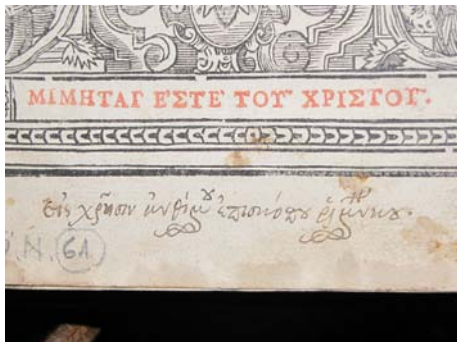 ΜΙΜΗΤΑΙ' Ε'ΣΤΕ' ΤΟΥ͂ ΧΡΙΣΤΟΥ͂.
Εἰς χρῆσιν ἀνθίμου ἐπισκόπου ῥιμνίκου.
N. 61